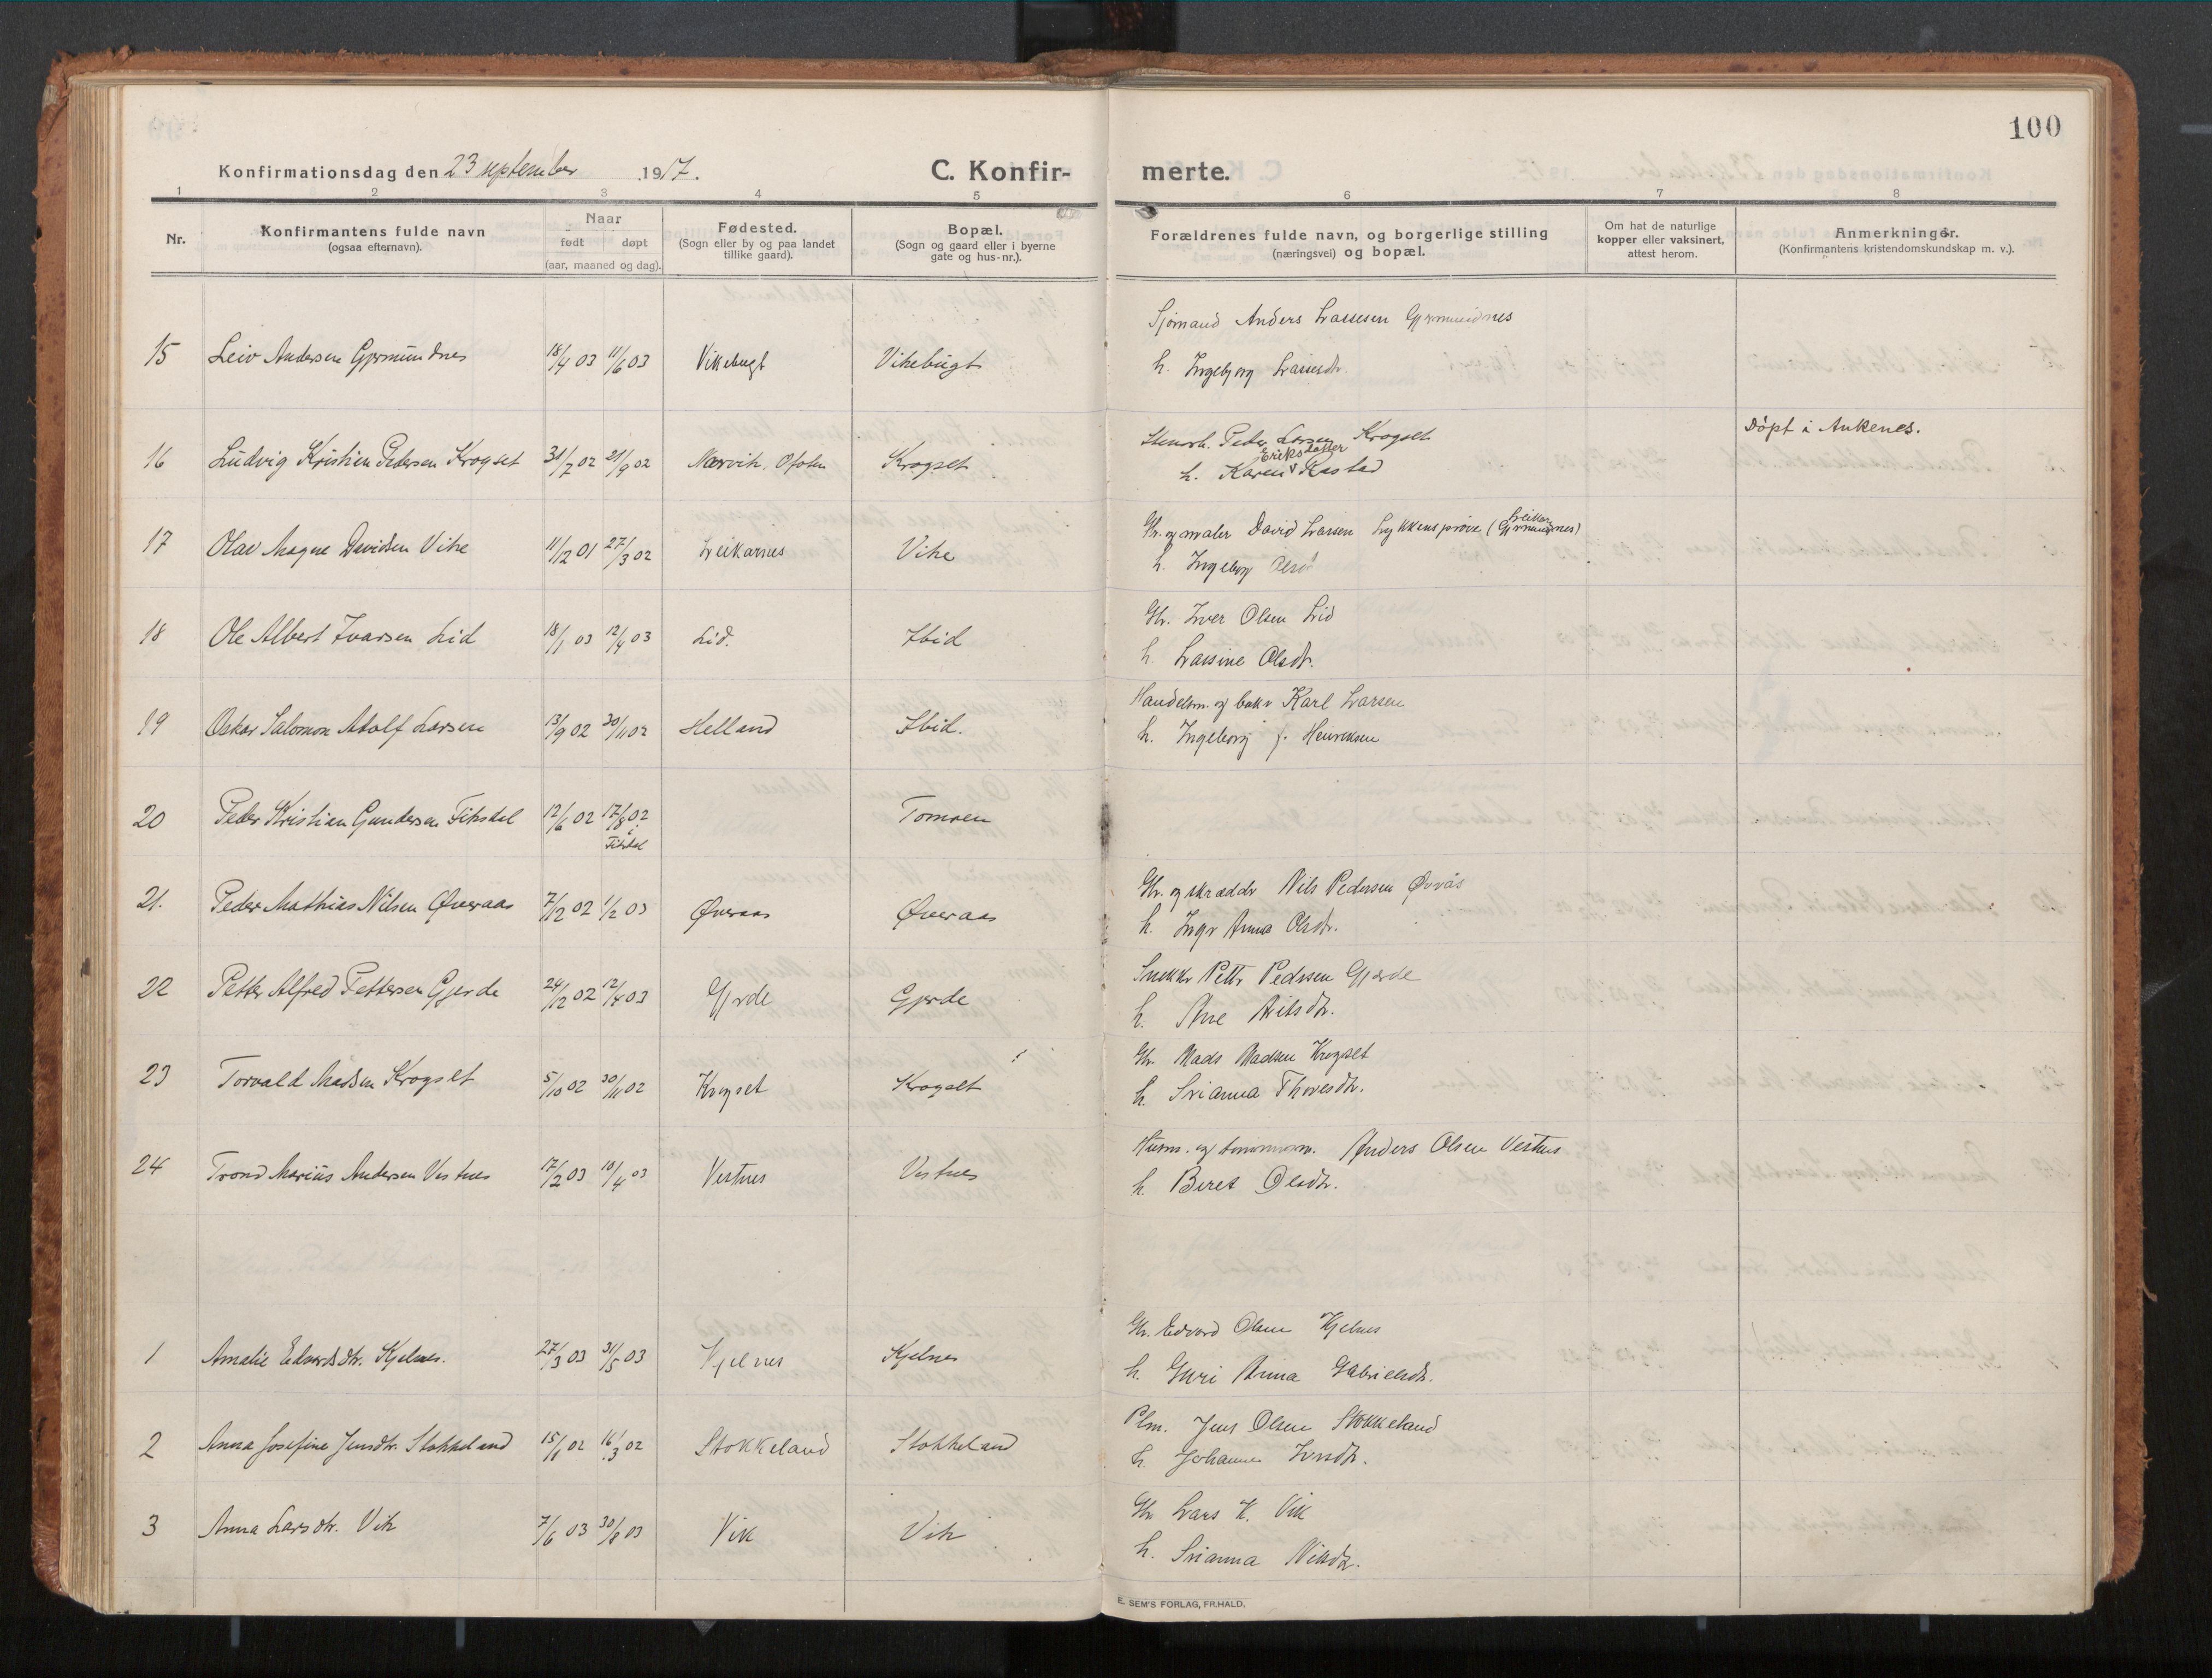 100
Konfirmationsdag den 23 september 1917.
C. Konfir-merte.
1 2 3 4 5 6 7 8
Nr.
Konfirmantens fulde navn
(ogsaa efternavn).
Naar
født døpt
(aar, maaned og dag).
Fødested.
(Sogn eller by og paa landet
tillike gaard).
Bopæl.
(Sogn og gaard eller i byerne
gate og hus-nr.).
Forældrenes fulde navn, og borgerlige stilling
(næringsvei) og bopæl.
Om hat de naturlige
kopper eller vaksinert,
attest herom.
Anmerkninger.
(Konfirmantens kristendomskundskap m. v.).
Sjömand Anders Lassesen Gjermundnes
15 Leiv Andersen Gjermundnes 18/4 03 11/6 03 Vikebugt Vikebugt
h. Ingebjorg Lassesdtr.
Stenarb. Peder Larsen Krogset Döpt i Ankenes.
Eriksdatter
16 Ludvig Kristian Pedersen Krogset 31/7 02 21/9 02 Narvik, Ofoten Krogset h. Karen Rastad
Gbr. og maler David Larsen Lykkensprøve (Gjermundnes)
17 Olav Magne Davidsen Vike 11/12 01 27/3 02 Leikarnes Vike
h. Ingeborg
Gbr. Iver Olsen Lid
18 Ole Albert Ivarsen Lid 18/1 03 12/4 03 Lid. Ibid
h. Lassine Olsdtr.
Handelsm. og baker Karl Larsen
19 Oskar Salomon Adolf Larsen 13/9 02 30/11 02 Helland Ibid.
h. Ingeborg f. Henriksen
20 Peder Kristian Gundersen Fiksdal 12/6 02 17/8 02 Tomren
i
Fiksdal
Gbr. og skrædder Nils Pedersen Øvraas
21. Peder Mathias Nilsen Øveraas 7/12 02 1/2 03 Øveraas Øveraas
h. Inger Anna Olsdtr.
Snekker Petter Pedersen Gjerde
22 Petter Alfred Pettersen Gjerde 24/12 02 12/4 03 Gjerde Gjerde
h. Ane Nilsdtr.
Gbr. Mads Madsen Krogset
23 Torvald Madsen Krogset 5/10 02 30/11 02 Krogset Krogset
h. Srianna Thoresdtr.
Husm. og tømmerm. Anders Olsen Vestnes
24 Trond Marius Andersen Vestnes 17/2 03 10/4 03 Vestnes Vestnes
h. Beret Olsdtr.
Gbr. Edvard Olsen Kjelnes
1 Amalie Edvardsdtr. Kjelnes. 27/3 03 31/5 03 Kjelnes Kjelnes
h. Guri Anna Gabrielsdtr.
Plm. Jens Olsen Stokkeland
2 Anna Josefine Jensdtr. Stokkeland 15/1 02 16/3 02 Stokkeland Stokkeland
h. Johanne Iversdtr.
Gbr Lars K. Vik
3 Anna Larsdtr. Vik 7/6 03 30/8 03 Vik Vik
h. Srianna Nilsdtr.
E. SEM'S FORLAG, FR.HALD.